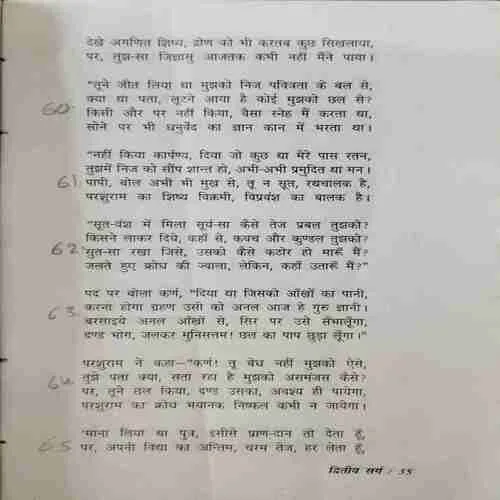 देखे अगणित शिष्य, द्रोण को भी करतब कुछ सिखलाया,
पर, तुझ-सा जिज्ञासु आजतक कभी नहीं मैंने पाया।
"तूने जीत लिया था मुझको निज पवित्रता के बल से,
60. क्या था पता, लूटने आया है कोई मुझको छल से?
किसी और पर नहीं किया, वैसा स्नेह मैं करता था,
सोने पर भी धनुर्वेद का ज्ञान कान में भरता था।
"नहीं किया कार्पण्य, दिया जो कुछ था मेरे पास रतन,
तुझमें निज को सौंप शान्त हो, अभी-अभी प्रमुदित था मन।
61. पापी, बोल अभी भी मुख से, तू न सूत, रथचालक है,
परशुराम का शिष्य विक्रमी, विप्रवंश का बालक है।
"सूत-वंश में मिला सूर्य-सा कैसे तेज प्रबल तुझको?
किसने लाकर दिये, कहाँ से, कवच और कुण्डल तुझको?
62. सुत-सा रखा जिसे, उसको कैसे कठोर हो मारूँ मैं?
जलते हुए क्रोध की ज्वाला, लेकिन, कहाँ उतारूँ मैं?"
पद पर बोला कर्ण, "दिया था जिसको आँखों का पानी,
63. करना होगा ग्रहण उसी को अनल आज हे गुरु ज्ञानी।
बरसाइये अनल आँखों से, सिर पर उसे सँभालूँगा,
दण्ड भोग, जलकर मुनिसत्तम! छल का पाप छुड़ा लूँगा।"
परशुराम ने कहा-"कर्ण! तू बेध नहीं मुझको ऐसे,
64. तुझे पता क्या, सता रहा है मुझको असमंजस कैसे?
पर, तूने छल किया, दण्ड उसका, अवश्य ही पायेगा,
परशुराम का क्रोध भयानक निष्फल कभी न जायेगा।
65. "मान लिया था पुत्र, इसीसे प्राण-दान तो देता हूँ,
पर, अपनी विद्या का अन्तिम, चरम तेज, हर लेता हूँ,
द्वितीय सर्ग / 35